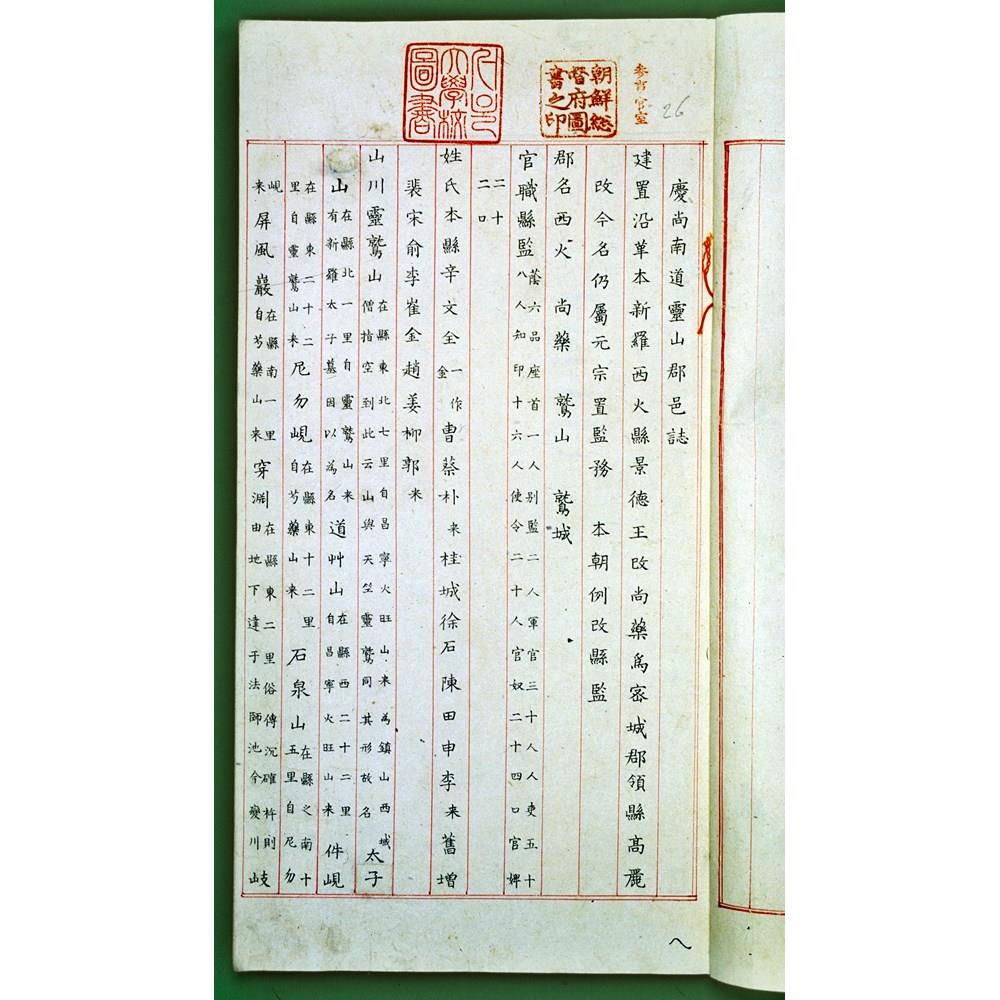 參書官室
26
朝鮮總
督府圖
書之印
大學校
圖書
慶尚南道靈山郡邑誌
建置沿革本新羅西火縣景德王改尚藥爲密城郡領縣高麗
改今名仍屬元宗置監務 本朝例改縣監
郡名西火 尚藥 鷲山 鷲城
官職縣監蔭六品座首一人別監二人軍官三十人人吏五十
八人知印十六人使令二十人官奴二十四口官婢
二十
二口
姓氏本縣辛文全一作金曺蔡朴来桂城徐石陳田申李来舊増
裴宋俞李崔金趙姜柳郭来
山川靈鷲山在縣東北七里自昌寧火旺山来為鎮山西域
僧指空到此云山與天竺靈鷲同其形故名太子
山在縣北一里自靈鷲山来
有新羅太子墓因以為名道艸山在縣西二十二里
自昌寧火旺山来件峴
在縣東二十二
里自靈鷲山来尼勿峴在縣東十二里
自芍藥山来石泉山在縣之南十
五里自尼勿
峴
来屏風巖在縣南一里
自芍藥山来穿淵在縣東二里俗傳沉確杵則
由地下達于法師池今變川岐